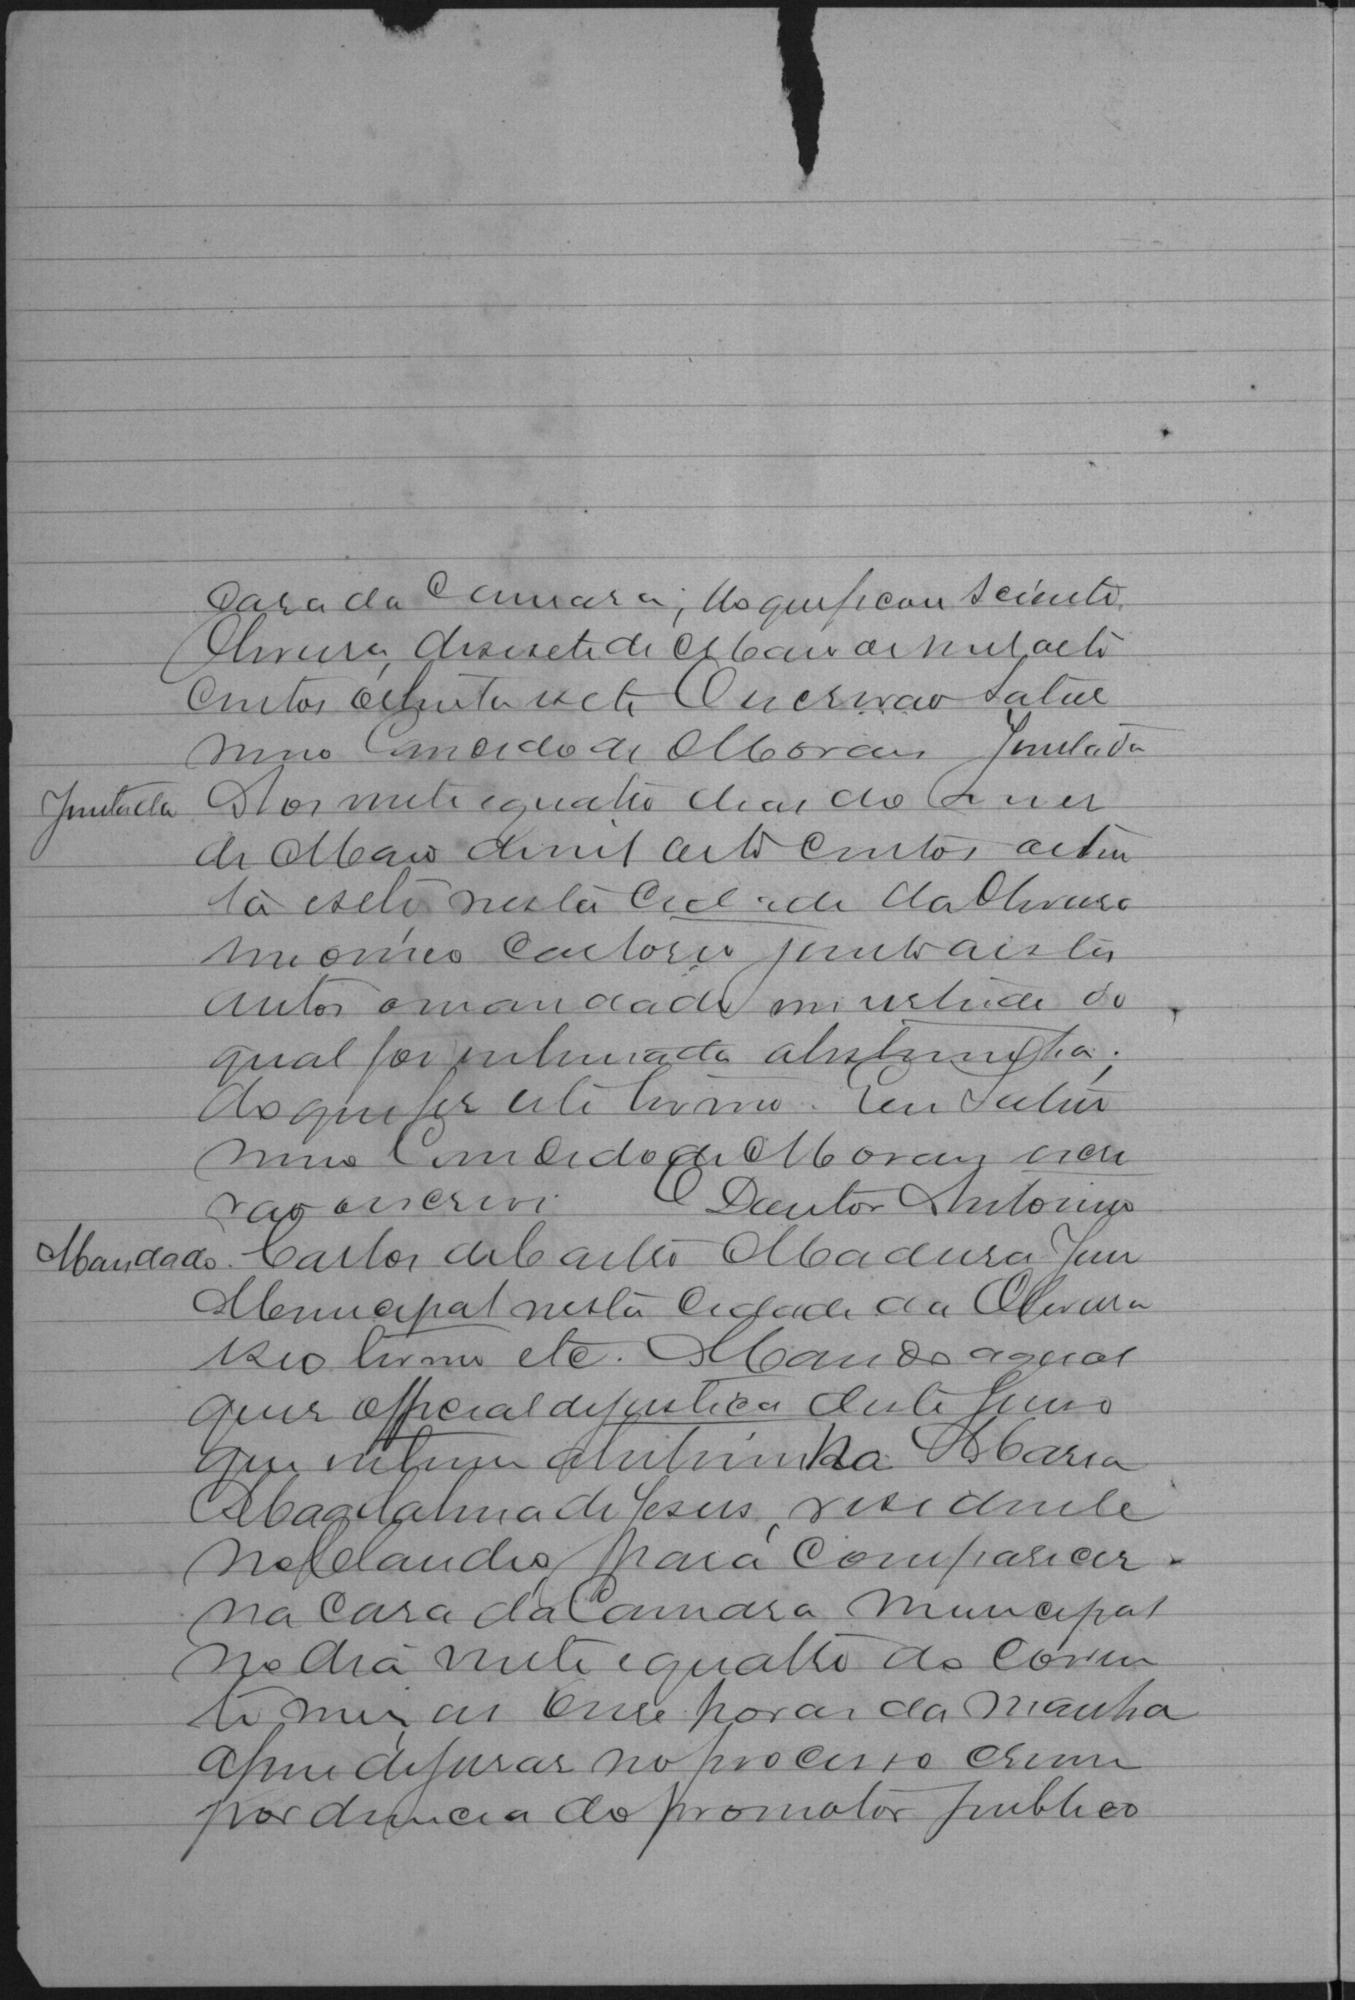 Casa da Camara; do que ficou sciente.
Oliveira, desesete de Maio de mil oito
centos oitenta e sete O escrivão Satur
nino Candido de Moraes Juntada
Juntada Aos vinte e quatro dias do mes
de Maio de mil oito centos oiten
ta e sete nesta Cidade da Oliveira
em o meo Cartorio junto a estes
autos o mandado em virtude do
qual foi intimada a testimunha;
do que fiz este termo. Eu Satur
nino Candido de Moraes escri
vão o escrevi O Doutor Antonio
Mandado. Carlos de Castro Madeira Juis
Municipal nesta Cidade da Oliveira
e seo termo etc. Mando a qual
quer official de justiça deste Juiso
que intime a testiminha Maria
Magdalena de Jesus, residente
no Claudio, para comparecer
na Casa da Camara Municipal
no dia vinte e quatro do corren
te mez as onse horas da manha
afim de jurar no processo crime
por denuncia do promotor publico